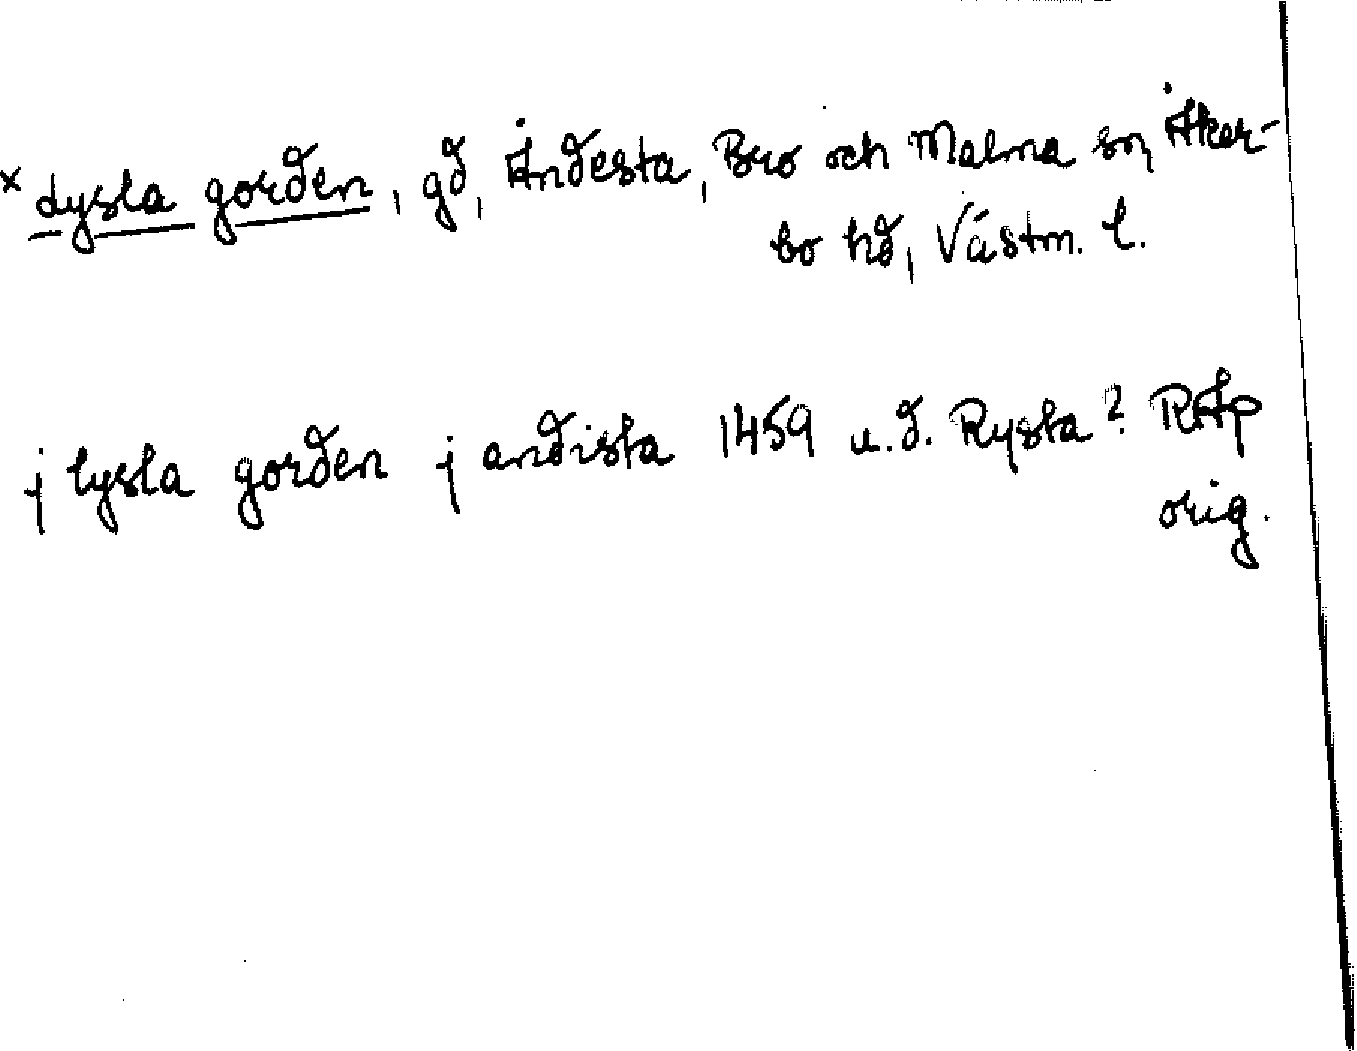 × lysla gorden, gd, Åndesta, Bro och Malma sn, Åker-
bo hd, Västm. l.
j lysla gorden j andista 1459 u.d. Rysta? RAp
orig.